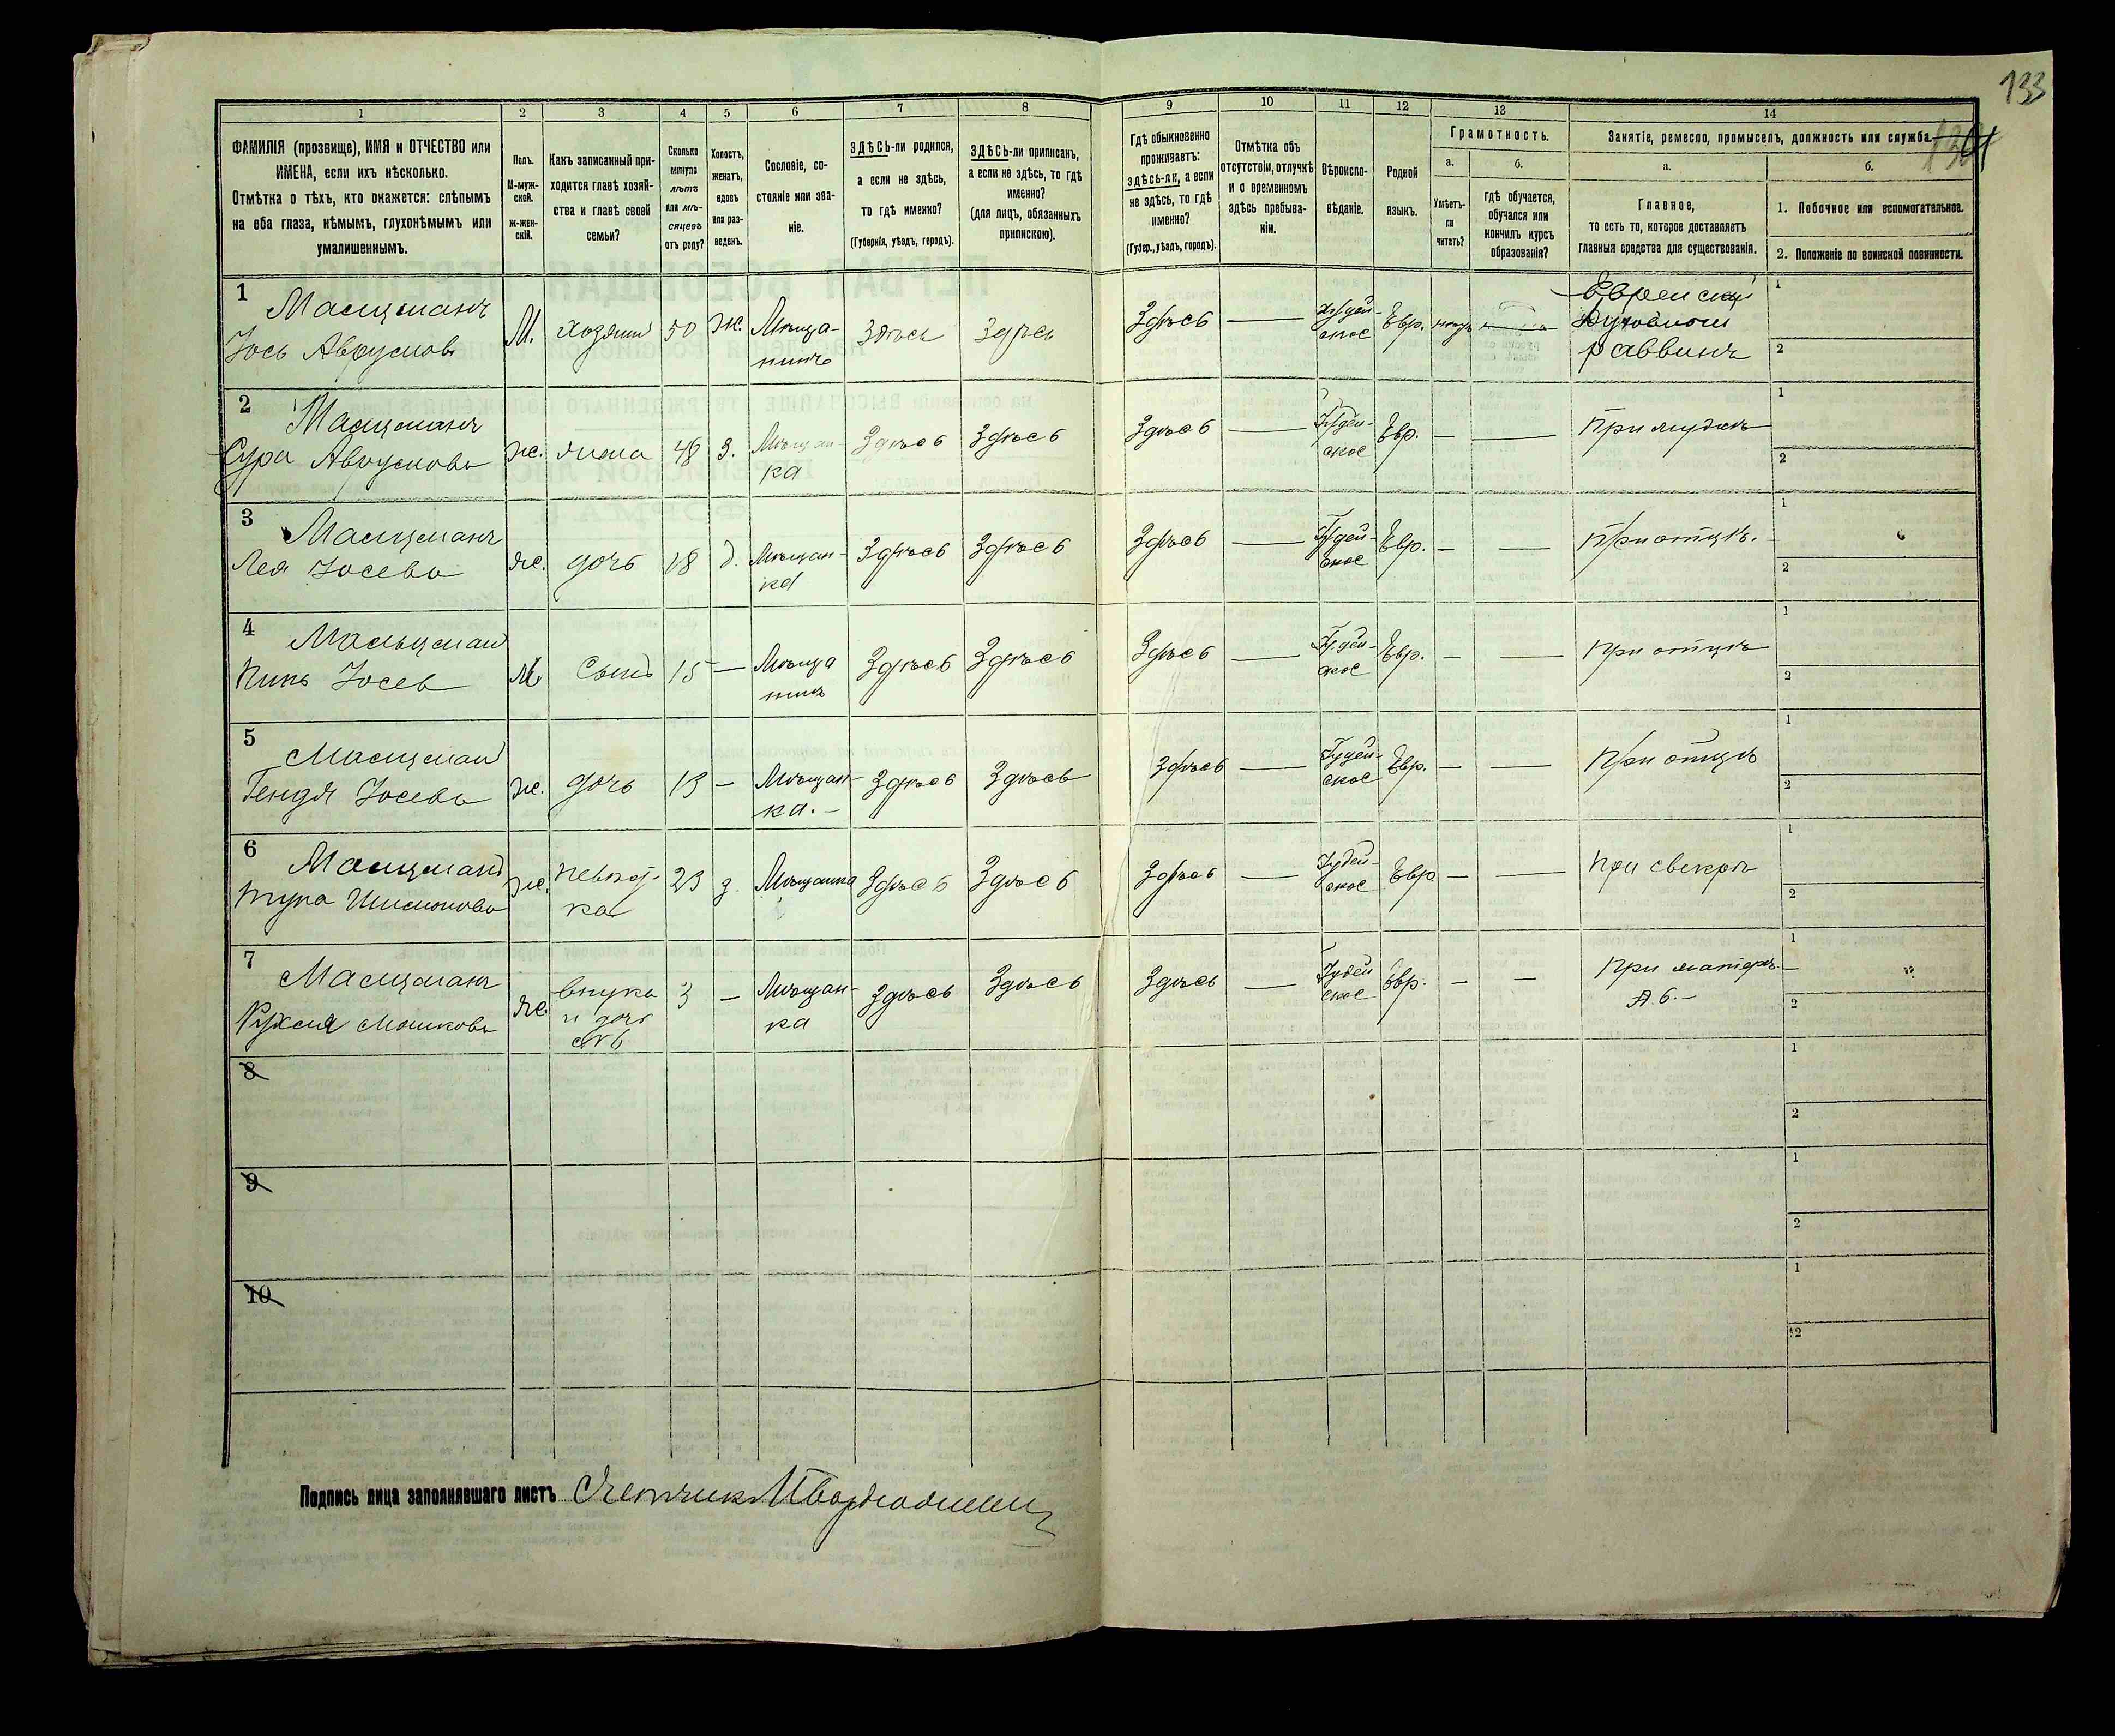 133
1 2 3 4 5 6 7 8 9 10 11 12 13 14
ФАМИЛІЯ (прозвище), ИМЯ и ОТЧЕСТВО или
ИМЕНА, если ихъ нѣсколько.
Отмѣтка о тѣхъ, кто окажется: слѣпымъ
на оба глаза, нѣмымъ, глухонѣмымъ или
умалишеннымъ.
Полъ.
М-муж-
ской.
Ж-жен-
скій.
Какъ записанный при-
ходится главѣ хозяй-
ства и главѣ своей
семьи?
Сколько
минуло
лѣтъ
или мѣ-
сяцевъ
отъ роду?
Холостъ,
женатъ,
вдовъ
или раз-
веденъ.
Сословіе, со-
стояніе или зва-
ніе.
ЗДѢСЬ-ли родился,
а если не здѣсь,
то гдѣ именно?
(Губернія, уѣздъ, городъ).
ЗДѢСЬ-ли приписанъ,
а если не здѣсь, то гдѣ
именно?
(для лицъ, обязанныхъ
припискою).
Гдѣ обыкновенно
проживаетъ:
здѣсь-ли, а если
не здѣсь, то гдѣ
именно?
(Губер., уѣздъ, городъ).
Отмѣтка объ
отсутствіи, отлучкѣ
и о временномъ
здѣсь пребыва-
ніи.
Вѣроиспо-
вѣданіе.
Родной
языкъ.
Грамотность.
а.
Умѣетъ-
ли
читать?
б.
гдѣ обучается,
обучался или
кончилъ курсъ
образованія?
Занятіе, ремесло, промыселъ, должность или служба.
а.
Главное,
то есть то, которое доставляетъ
главныя средства для существованія.
б.
1. Побочное или вспомогательное.
2. Положеніе по воинской повинности.
1 Малцманъ
Іось Аврумовъ М. хозяинъ 50 ж. Мѣща-
нинъ Здѣсь Здѣсь Здѣсь — Іудей-
ское Евр. — Еврейскій
Духовный
раввинъ 1 2
2 Малцманъ
Сура Аврумова ж. жена 48 з. Мѣщан-
ка Здѣсь Здѣсь Здѣсь — Іудей-
ское Евр. — — При мужѣ 1 2
3 Малцманъ
Лея Іосева ж. дочь 18 д. Мѣщан-
ка Здѣсь Здѣсь Здѣсь — Іудей-
ское Евр. — — При отцѣ. 1 2
4 Мальцман
Пинь Іосев М. Сынъ 15 — Мѣща
нинъ Здѣсь Здѣсь Здѣсь — Іудей-
ское Евр. — — при отцѣ 1 2
5 Малцман
Гендя Іосева ж. дочь 13 — Мѣщан-
ка. — Здѣсь Здѣсь Здѣсь — Іудей-
ское Евр. — — При отцѣ 1 2
6 Малцманъ
Шимонова ж. невѣст-
ка 23 з. Мѣщанка Здѣсь Здѣсь Здѣсь — Іудей-
ское Евр — — При свекрѣ 1 2
7 Малцманъ
Рухля Мошкова ж. внука
и дочь
3 — Мѣщан-
ка Здѣсь Здѣсь Здѣсь — Іудей
ское Евр. — — При матерѣ. —
А. 6. — 1 2
8 1 2
9 1 2
10 1 2
Подпись лица заполнявшаго листъ Счетчик